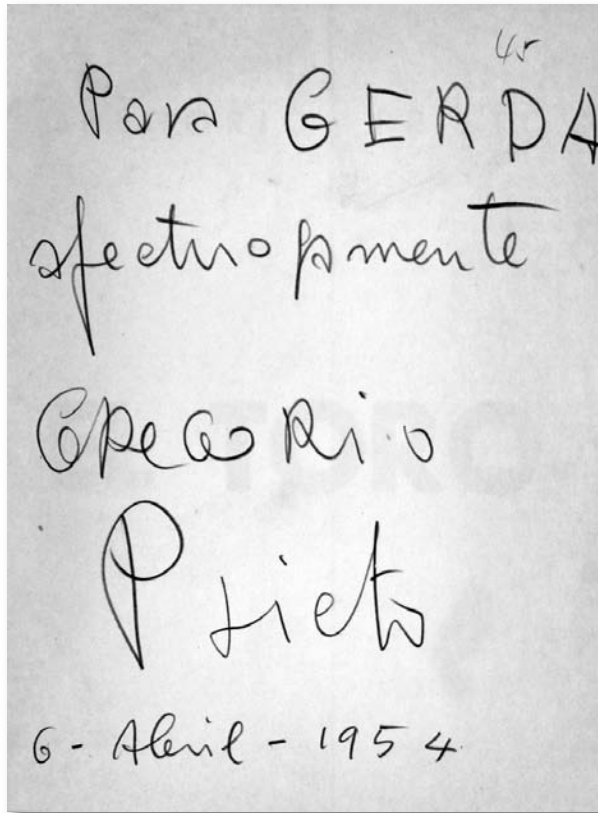 45
Para GERDA
afectuosamente
GREGORIO
Prieto
6 - Abril - 1954
TORO